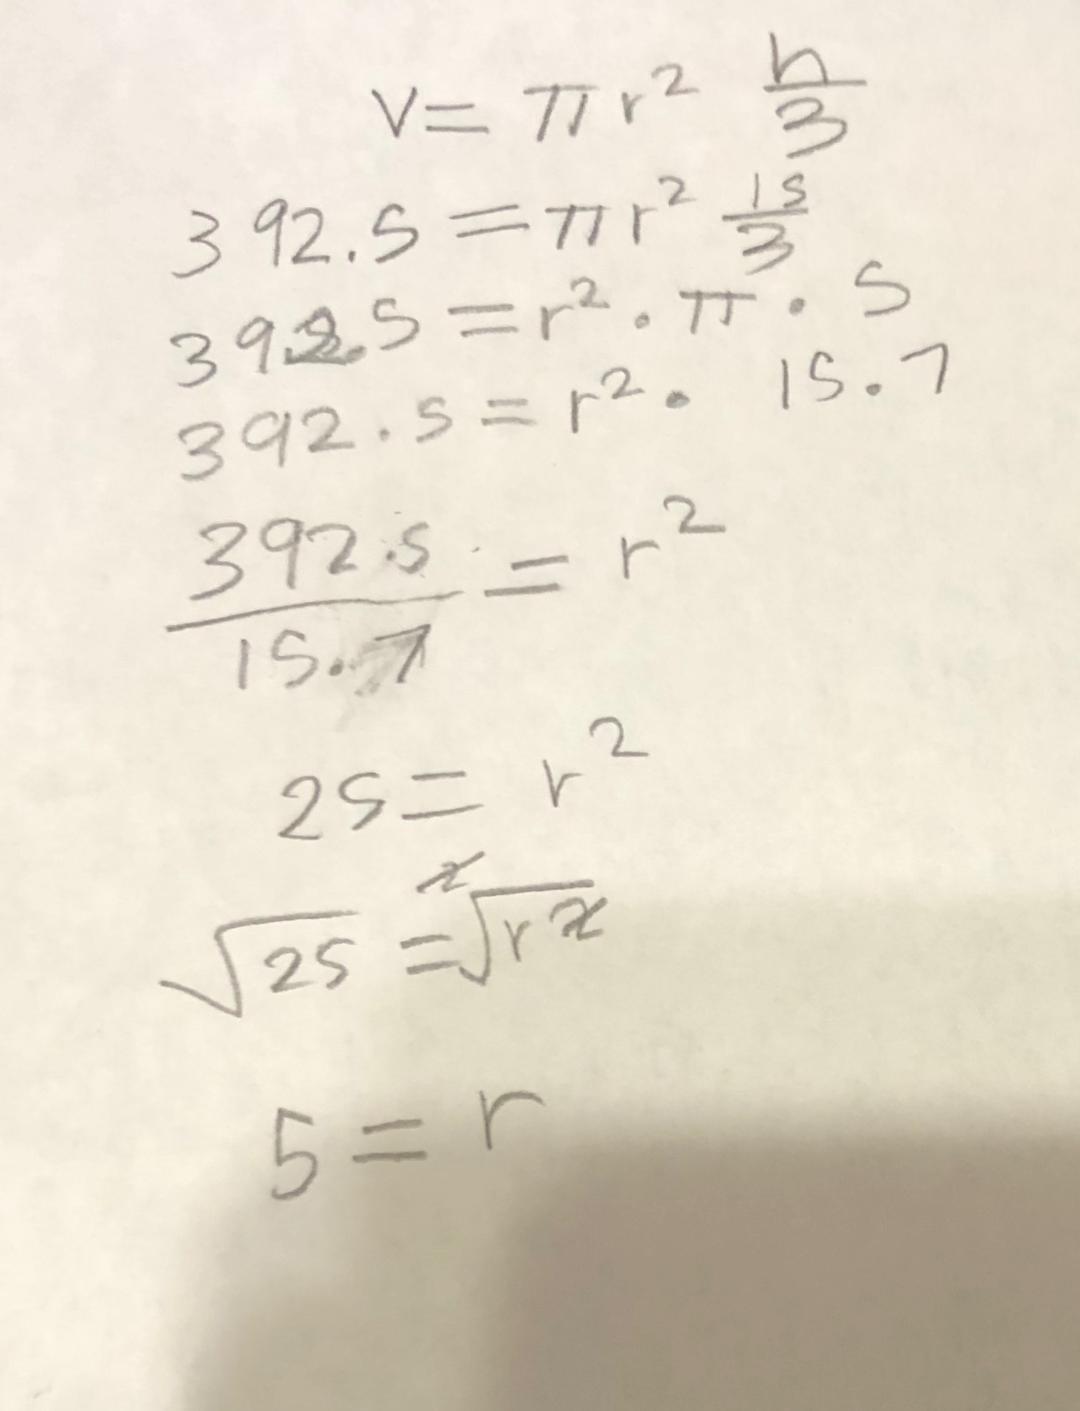 V = πr² h/3
392.5 = πr² 15/3
392.5 = r² · π · 5
392.5 = r² · 15.7
392.5/15.7 = r²
25 = r²
√25 = ²√r²
5 = r